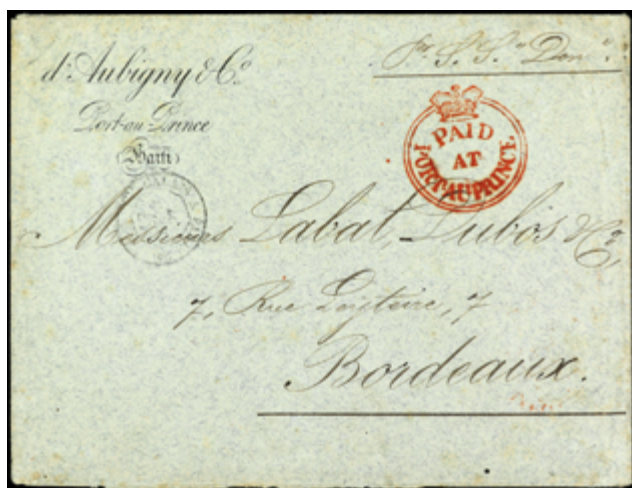 d'Aubigny & Co.
Port-au-Prince
(Haïti)
Pr. S. S. "Don".
PAID
AT
PORT-AU-PRINCE.
Messieurs Labat, Dubos & Co,
7, Rue 7
Bordeaux.